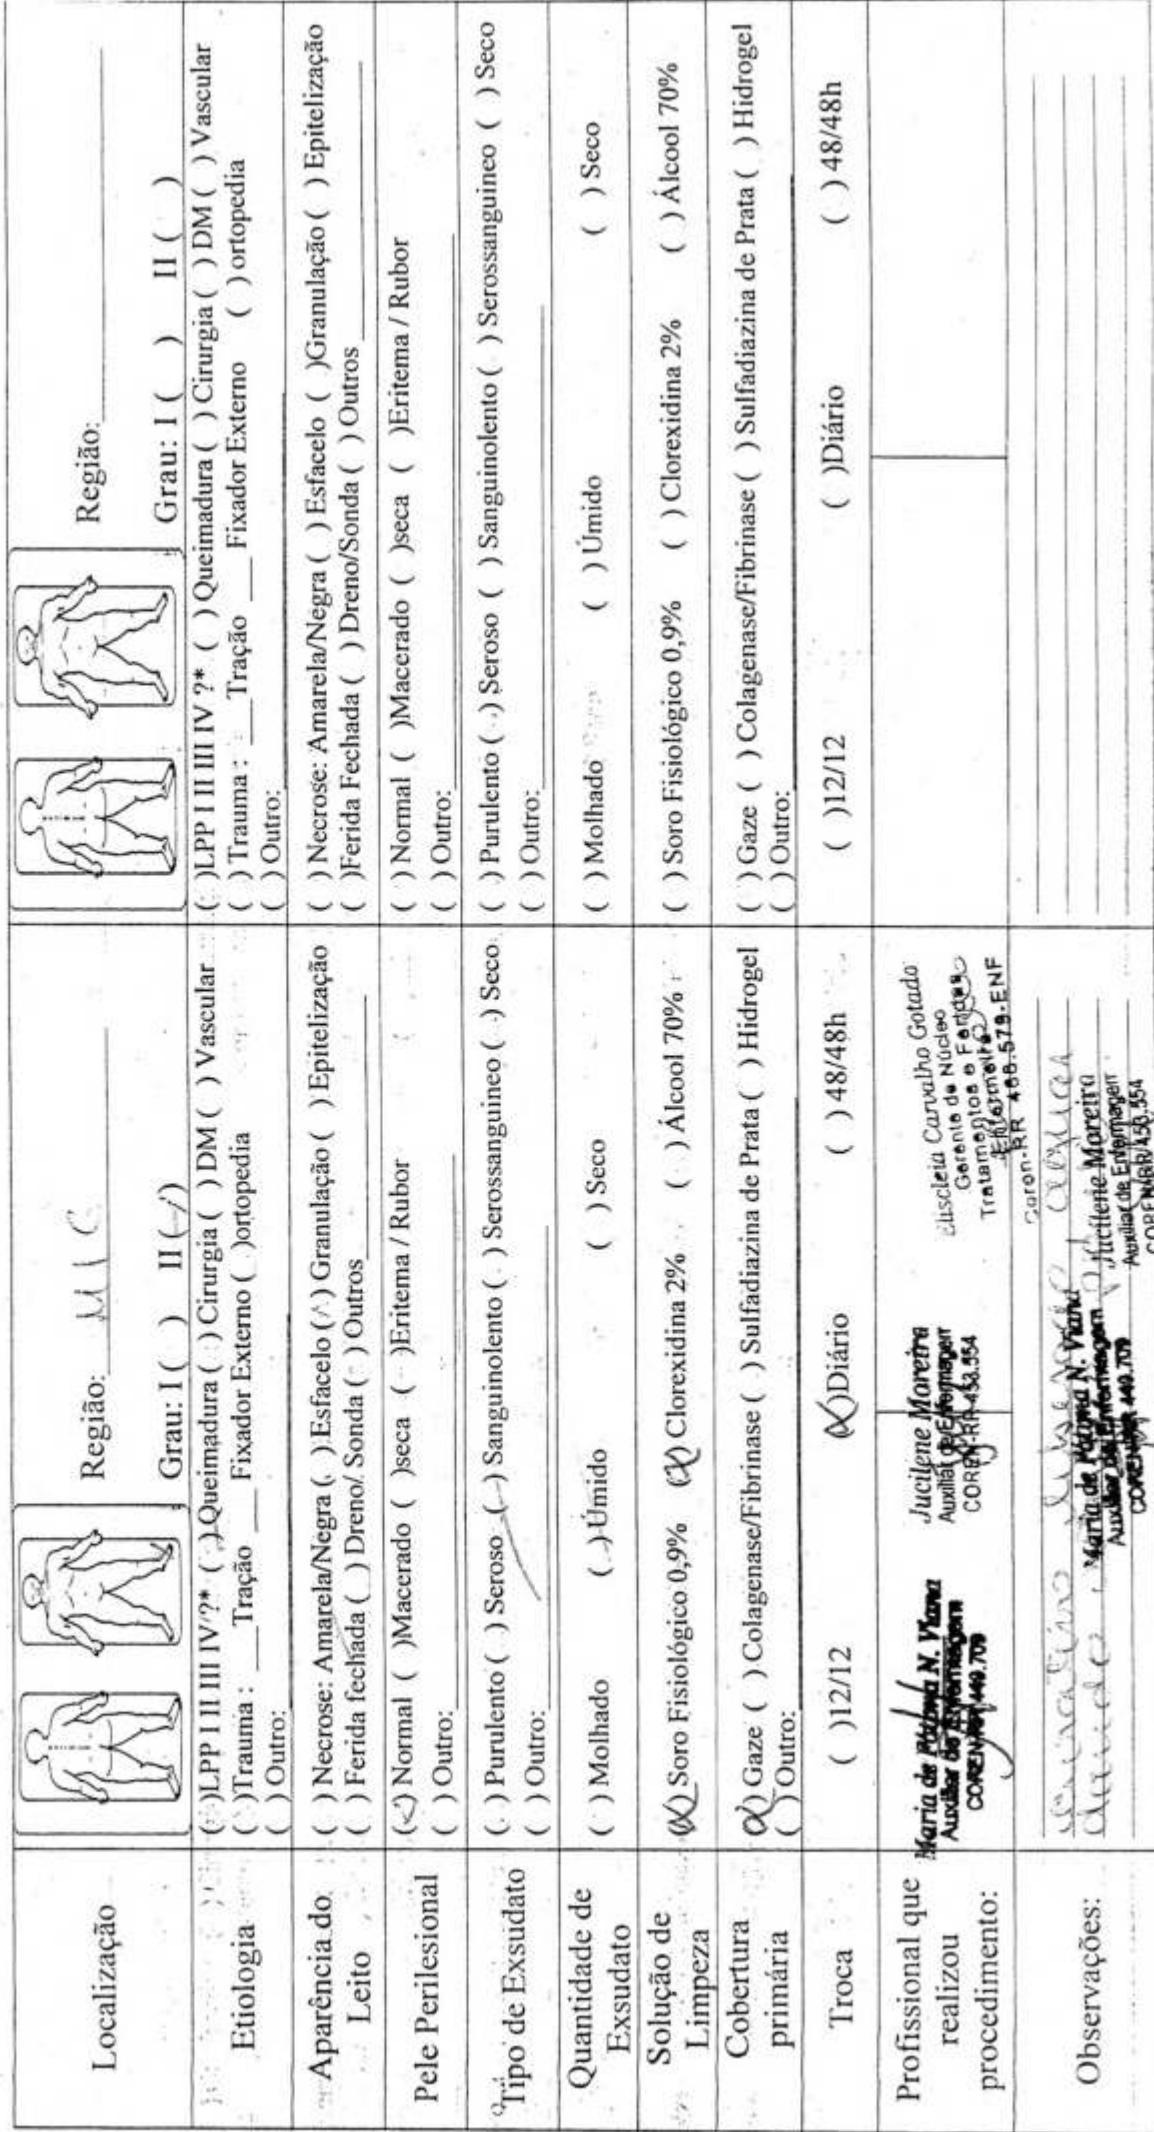 Localização
Região: M I C
Grau: I ( ) II (/)
Região:
Grau: I ( ) II ( )
Etiologia
( )LPP I II III IV ?* ( )Queimadura ( ) Cirurgia ( ) DM ( ) Vascular
( )Trauma : ___Tração ___ Fixador Externo ( )ortopedia
( ) Outro:
( )LPP I II III IV ?* ( )Queimadura ( ) Cirurgia ( ) DM ( ) Vascular
( ) Trauma : ___Tração ___ Fixador Externo ( )ortopedia
( ) Outro:
Aparência do
Leito
( ) Necrose: Amarela/Negra ( ) Esfacelo (^) Granulação ( ) Epitelização
( ) Ferida fechada ( ) Dreno/ Sonda ( ) Outros
( ) Necrose: Amarela/Negra ( ) Esfacelo ( )Granulação ( ) Epitelização
( )Ferida Fechada ( ) Dreno/Sonda ( ) Outros
Pele Perilesional
(<) Normal ( )Macerado ( )seca ( )Eritema / Rubor
( ) Outro:
( ) Normal ( )Macerado ( )seca ( )Eritema / Rubor
( ) Outro:
Tipo de Exsudato
( ) Purulento ( ) Seroso (-) Sanguinolento ( ) Serossanguineo ( ) Seco
( ) Outro:
( ) Purulento ( ) Seroso ( ) Sanguinolento ( ) Serossanguineo ( ) Seco
( ) Outro:
Quantidade de
Exsudato
( ) Molhado ( ) Úmido ( ) Seco
( ) Molhado ( ) Úmido ( ) Seco
Solução de
Limpeza
(X) Soro Fisiológico 0,9% (X) Clorexidina 2% ( ) Álcool 70%
( ) Soro Fisiológico 0,9% ( ) Clorexidina 2% ( ) Álcool 70%
Cobertura
primária
(X) Gaze ( ) Colagenase/Fibrinase ( ) Sulfadiazina de Prata ( ) Hidrogel
( ) Outro:
( ) Gaze ( ) Colagenase/Fibrinase ( ) Sulfadiazina de Prata ( ) Hidrogel
( ) Outro:
Troca
( )12/12 (X)Diário ( ) 48/48h
( )12/12 ( )Diário ( ) 48/48h
Profissional que
realizou
procedimento:
Maria de N. Viana
Auxiliar de Enfermagem
COREN 449.709
Jucilene Moreira
Auxiliar de Enfermagem
COREN-RR-453.554
Eliscleia Carvalho Gotado
Gerente de Núcleo
Tratamentos e Feridas
Enfermeira
Coren-RR 486.579-ENF
Observações:
Maria de N. Viana
Auxiliar de Enfermagem
COREN 449.709
Jucilene Moreira
Auxiliar de Enfermagem
COREN-RR/453.554